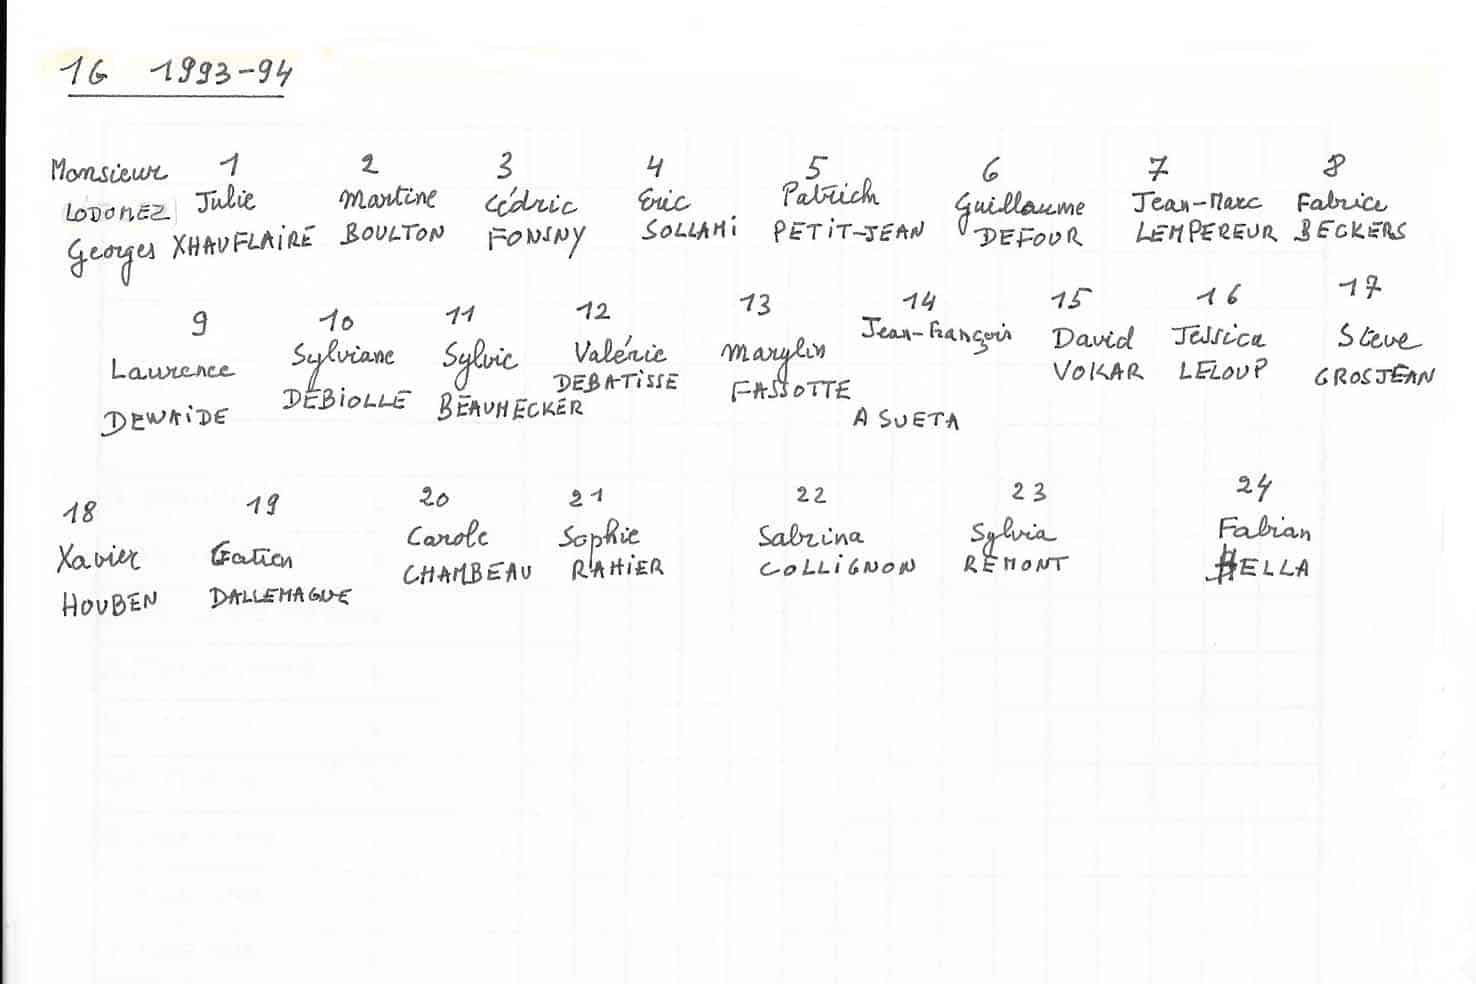 1G 1993-94
Monsieur 1 2 3 4 5 6 7 8
LODOMEZ Julie Martine Cédric Eric Patrick Guillaume Jean-Marc Fabrice
Georges XHAUFLAIRE BOULTON FONSNY SOLLAMi PETiT-JEAN DEFOUR LEMPEREUR BECKERS
9 10 11 12 13 14 15 16 17
Laurence Sylviane Sylvie Valérie Marylin Jean-François David Jessica Steve
DEWAiDE DEBiOLLE BEAUMECKER DEBATiSSE FASSOTTE ASUETA VOKAR LELOUP GROSJEAN
18 19 20 21 22 23 24
Xavier Gatien Carole Sophie Sabrina Sylvia Fabian
HOUBEN DALLEMAGUE CHAMBEAU RAHIER COLLIGNON REMONT HELLA